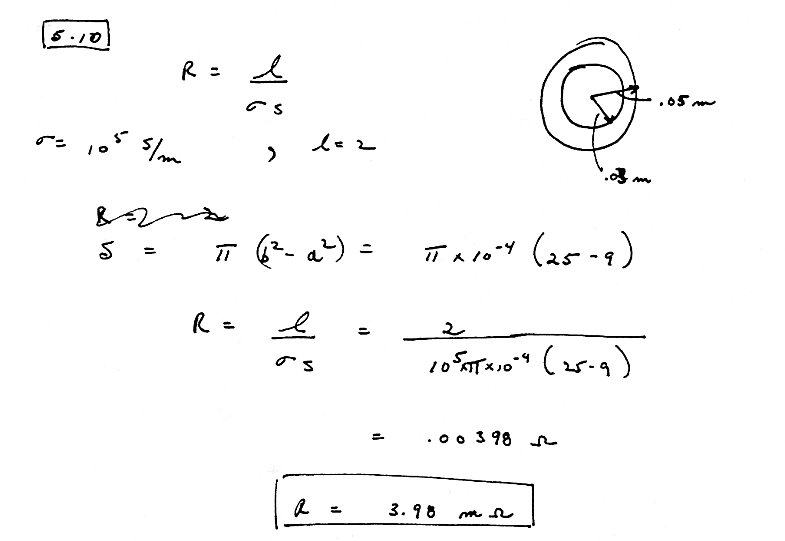 5.10
R = l / σ s
.05 m
σ = 10^5 S/m , l = 2
.03 m
S = π (b² - a²) = π × 10^-4 (25 - 9)
R = l / σ s = 2 / 10^5 × π × 10^-4 (25 - 9)
= .00398 Ω
R = 3.98 m Ω